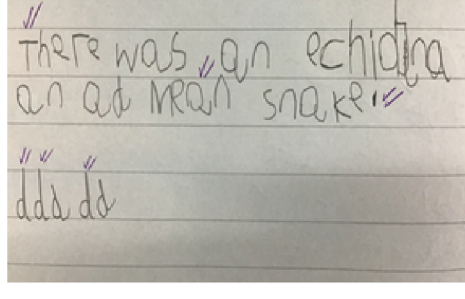 There was an echidna
an ad mean snake.
ddd dd